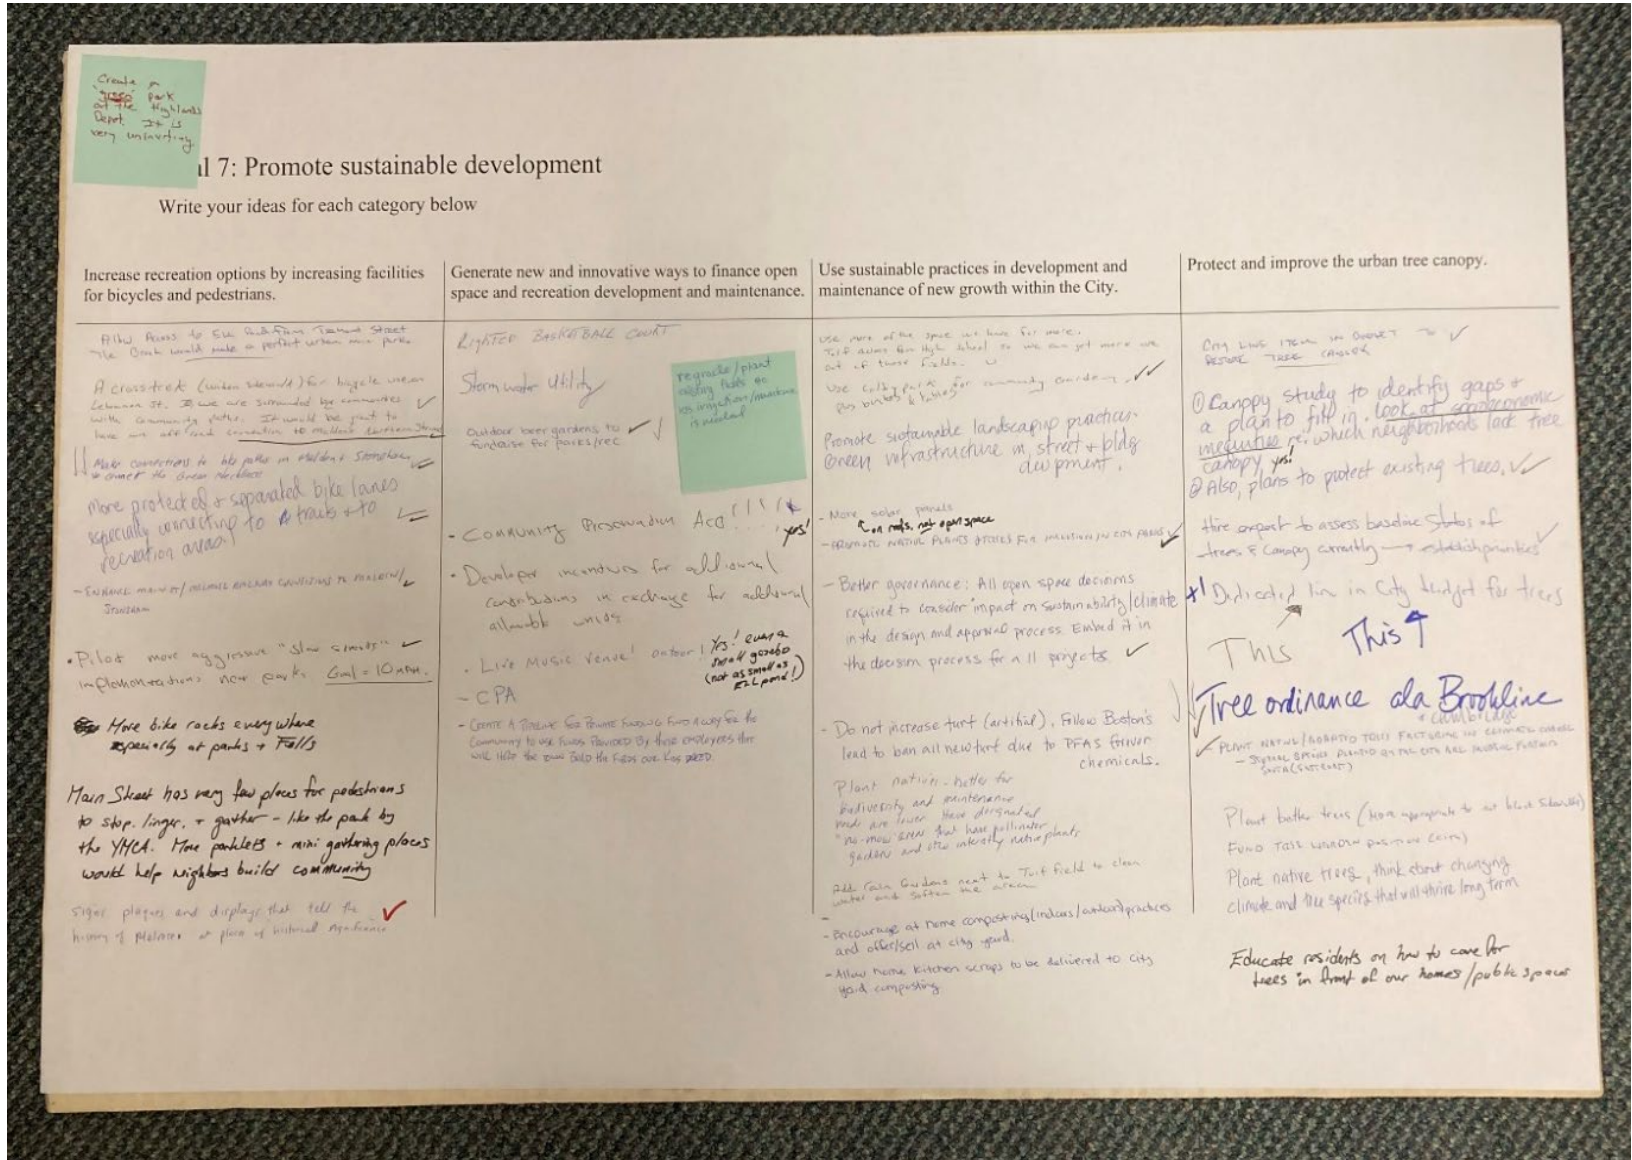 Create a
park
at the Highlands
Depot. It is
very uninviting
al 7: Promote sustainable development
Write your ideas for each category below
Increase recreation options by increasing facilities
for bicycles and pedestrians.
Allow Access to Ell Pond from Tremont Street
The Brook would make a perfect urban mini park.
A crosstrek (urban sidewalk) for bicycle use on
Lebanon St. we are surrounded by communities
with community paths. It would be great to
have an off road connection to Malden's Northern Strand
Make connections to bike paths in Malden & Stoneham
connect the Green Necklace
More protected & separated bike lanes
especially connecting to trails & to
recreation areas!
- Enhance connections to Malden/
Stoneham
• Pilot more aggressive "slow streets"
implementations near parks. Goal = 10 mph.
More bike racks everywhere
especially at parks + Fells
Main Street has very few places for pedestrians
to stop, linger, + gather - like the park by
the YMCA. More parklets + mini gathering places
would help neighbors build community
Signs, plaques and displays that tell the
history of Melrose at place of historical significance
Generate new and innovative ways to finance open
space and recreation development and maintenance.
Lighted Basketball Court
Stormwater Utility
regrade/plant
existing fields so
less irrigation/maintenance
is needed
Outdoor beer gardens to
fundraise for parks/rec
• Community Preservation Act!!!!
yes!
• Developer incentives for additional
contributions in exchange for additional
allowable units
• Live Music venue! outdoor!
Yes! even a
small gazebo
(not as small as
Ell pond!)
- CPA
- Create a pipeline for private funding. Find a way for the
community to use funds provided by their employers that
will help the town build the fields our kids need.
Use sustainable practices in development and
maintenance of new growth within the City.
Use more of the space we have for more.
Turf across from High School so we can get more use
out of those fields.
Use Colby park for community Gardens,
& tables
Promote sustainable landscaping practices.
Green infrastructure in street & bldg
devpment.
- More solar panels
on roofs, not open space
- Promote native plants & trees for in city parks
- Better governance: All open space decisions
required to consider impact on sustainability/climate
in the design and approval process. Embed it in
the decision process for all projects
- Do not increase turf (artificial), Follow Boston's
lead to ban all new turf due to PFAS forever
chemicals.
Plant natives - better for
biodiversity and maintenance
needs are lower. Have designated
"no-mow" areas that have pollinator
gardens and other interesting native plants
Add rain Gardens next to Turf field to clean
water and soften the area
- Encourage at home composting (indoors/outdoor) practices
and offer/sell at city yard.
- Allow home kitchen scraps to be delivered to city
yard composting
Protect and improve the urban tree canopy.
City line item in budget to
restore tree canopy
① Canopy study to identify gaps &
a plan to fill in. look at socioeconomic
inequities re: which neighborhoods lack tree
canopy, yes!
② Also, plans to protect existing trees.
Hire expert to assess baseline status of
trees & canopy currently → establish priorities
+1 Dedicated line in City budget for trees
This This
Tree ordinance ala Brookline
+ Cambridge
Plant native/adapted trees factoring in climate change
Plant better trees (more appropriate to
Fund tree warden position (city)
Plant native trees, think about changing
climate and tree species that will thrive long term
Educate residents on how to care for
trees in front of our homes/public spaces